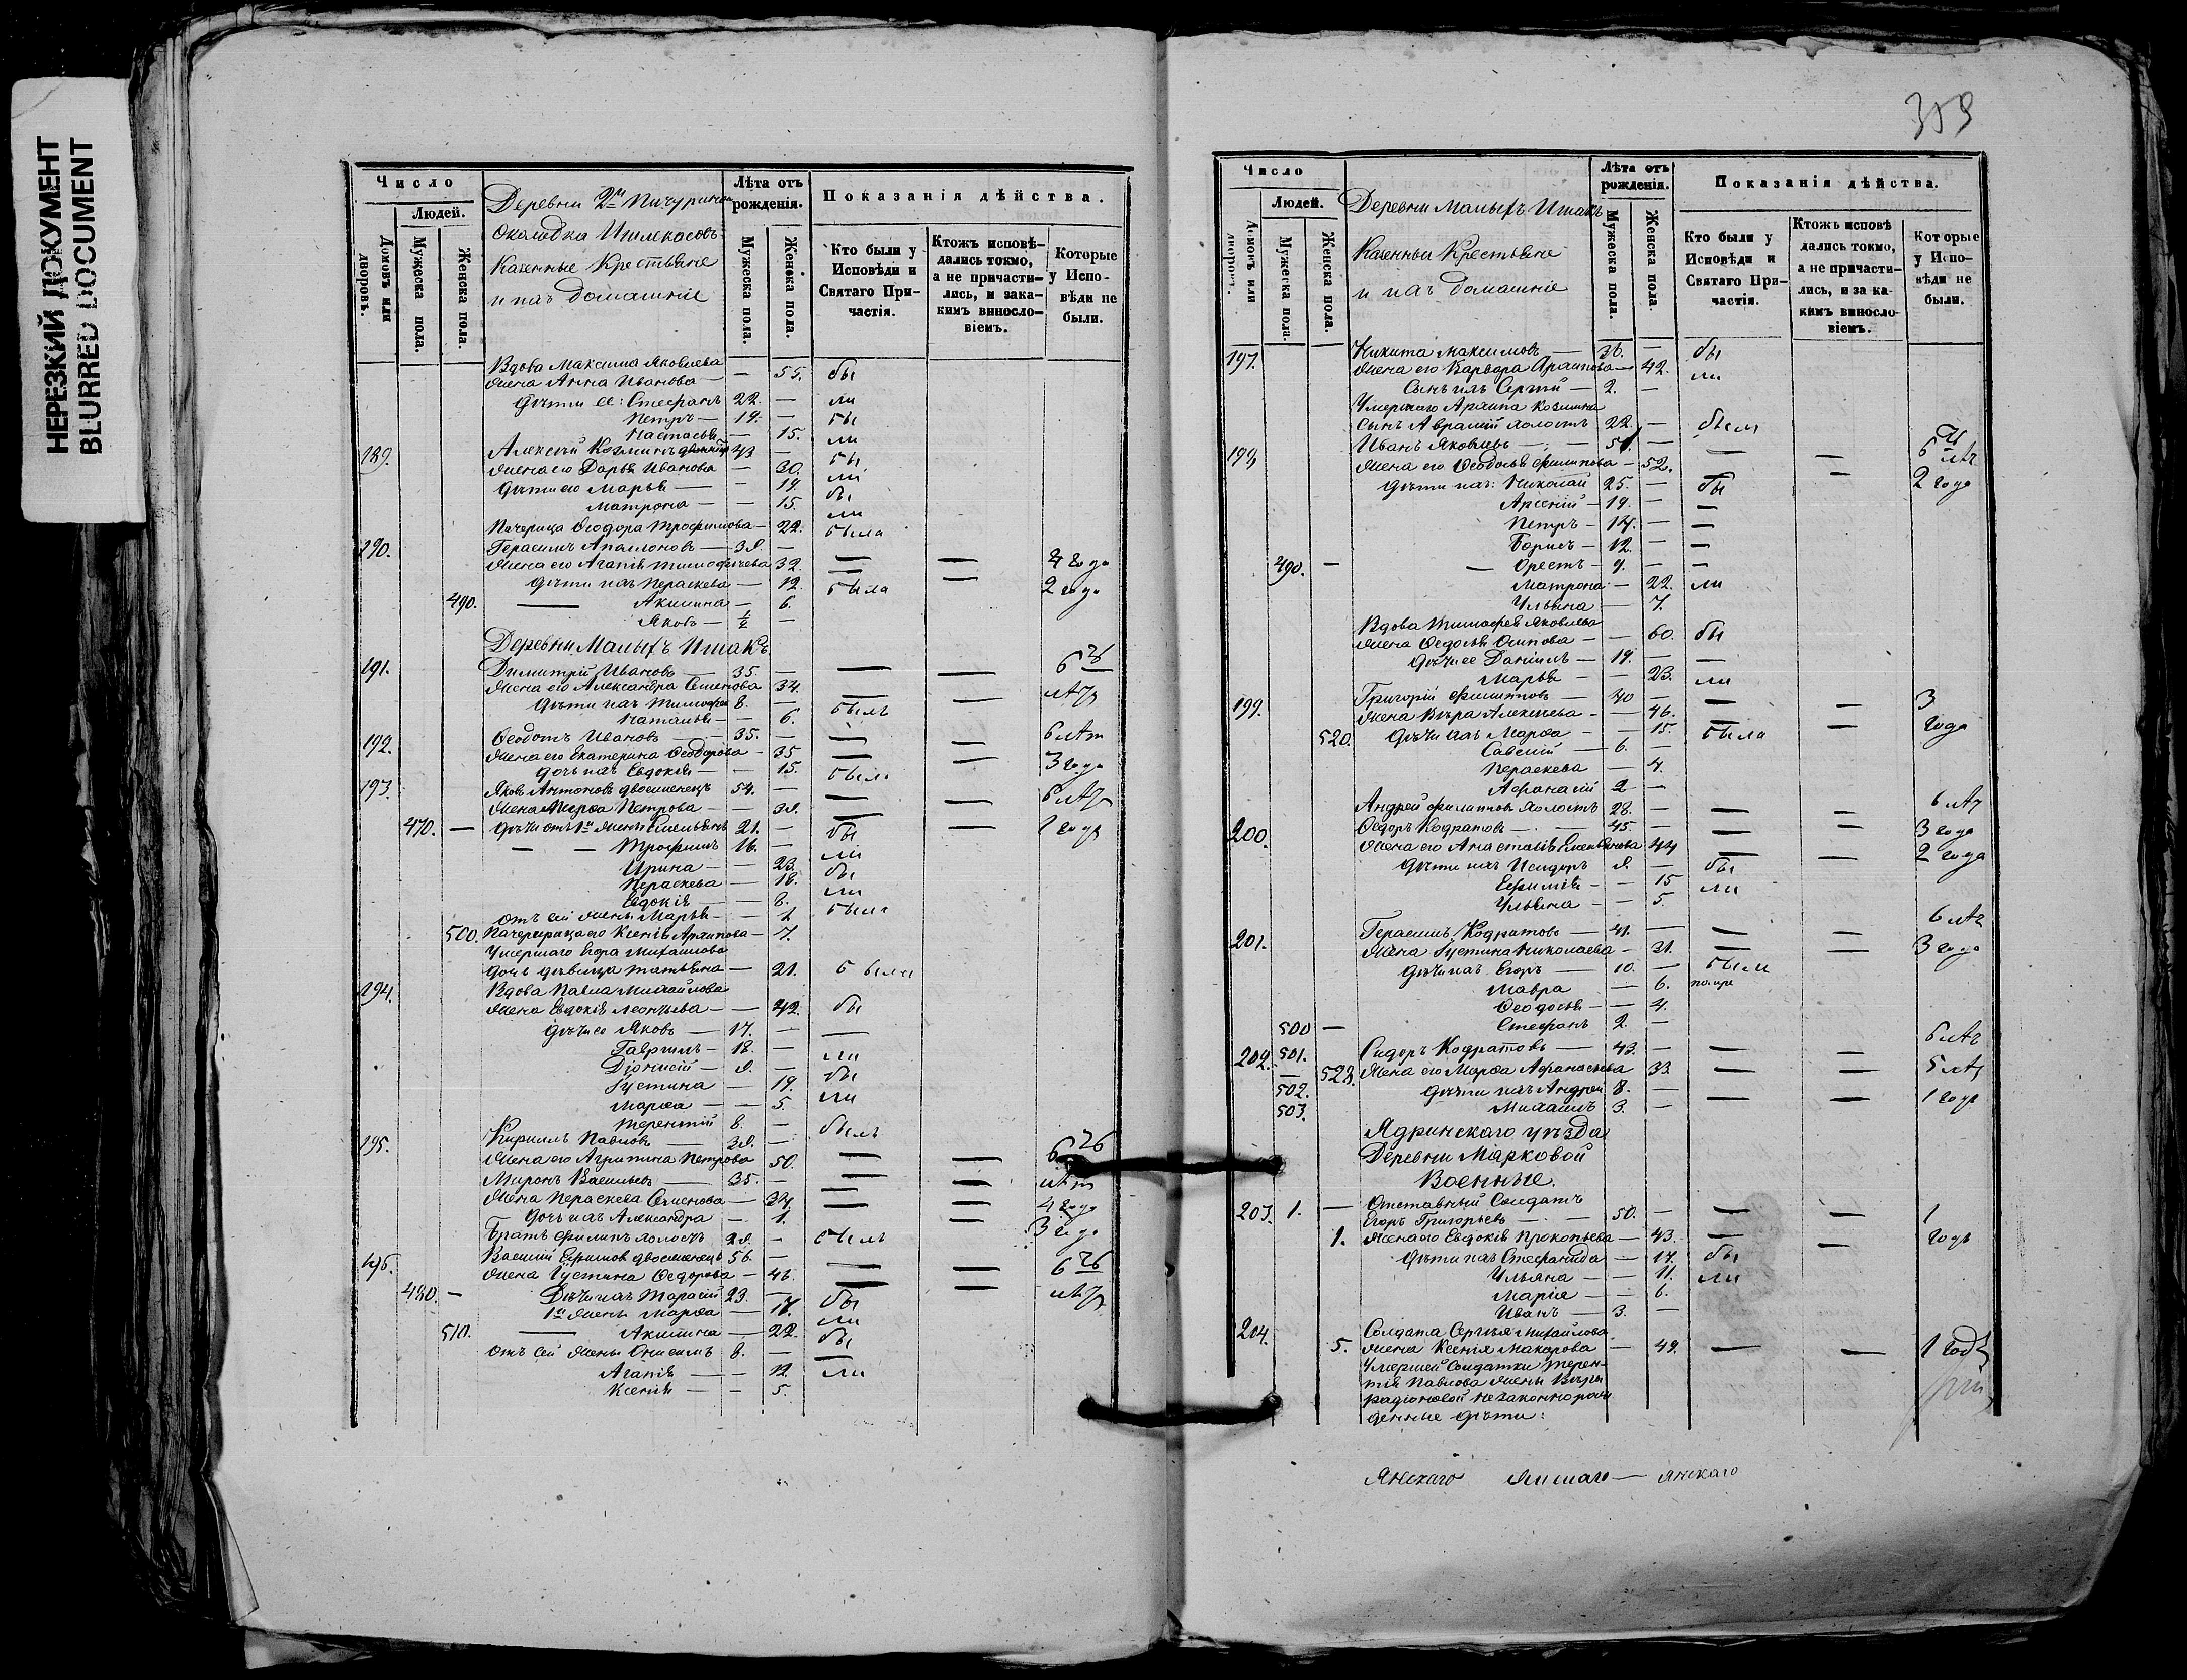 НЕРЕЗКИЙ ДОКУМЕНТ
BLURRED DOCUMENT
Число
Домовъ или дворовъ.
Людей.
Мужеска пола.
Женска пола.
Деревни 2й Пичурин
околодка Ишлекасовъ
Казенные Крестьяне
и ихъ домашніе
Лѣта отъ рожденія.
Мужеска пола.
Женска пола.
Показанія дѣйства.
Кто были у Исповѣди и Святаго Причастія.
Ктожъ исповѣдались токмо, а не причастились, и закакимъ винословіемъ.
Которые у Исповѣди не были.
Вдова Максима Яковлева
жена Анна Иванова — — 55. бы
дѣти ее: Стефанъ 22. — ли
Петръ — 19. — бы
Настасья — 15. ли
189. Алексѣй Козминъ 43 — бы
жена его Дарья Иванова — 30. ли
дѣти его Марья — — 19. бы
Матрона — — 15. ли
Пачерица Ѳеодора Трофимова — 22. была
190. Герасимъ Аполлоновъ — 38. — — —
жена его Агапія Тимофѣева 32. — — 4 года
дѣти ихъ Параскева — 12. была 2 года
490. — Акилина — 6.
Яковъ — ½ —
Деревни Малыхъ Ишакъ
191. Димитрій Ивановъ — 35. — — — 6
жена его Александра Семенова 34. — — лѣтъ
дѣти ихъ Тимофей 8. — былъ
Наталья — — 6.
192. Ѳеодотъ Ивановъ — 35. — — — 6 лѣт
жена его Екатерина Ѳеодорова — 35 — — 3 года
дочь ихъ Евдокія — — 15. была
193. Яковъ Антоновъ двоеженецъ 54. — — — 6 лѣтъ
жена Марѳа Петрова — — 38. — — 1 годъ
470. — дѣти отъ 1й жены Емельянъ 21. — бы
— — Трофимъ 16. — ли
Ирина — 23. бы
Параскева — 18. ли
Евдокія — 8. была
отъ сей жены Марья — — 1.
500. Пачерица его Ксенія Архипова — 7.
Умершаго Егора Михайлова
дочь дѣвица Татьяна — 21. была
194. Вдова Павла Михайлова
жена Евдокія Леонтьева — — 42. бы
дѣти ее Яковъ — 17. — —
Гавріилъ — 18. — ли
Діонисій — 8. — бы
Іустина — 19. ли
Марѳа — — 5.
Терентій 8. — былъ
195. Кириллъ Павловъ — 38. — — — 6
жена его Агрипина Петрова 50. — — лѣт
Миронъ Васильевъ — 35. — — —
жена Параскева Семенова — 34. — — 4 года
дочь ихъ Александра — 1. — 3 года
Братъ Филипъ холостъ 28. — былъ
196. Василій Ефимовъ двоеженецъ 56. — — — 6
жена Іустина Ѳедорова — 46. — — лѣтъ
480. — Дѣти ихъ Тарасій 23. — бы
1й жены Марѳа — 17. ли
510. — Акилина — 22. бы
отъ сей жены Онисимъ 8. — —
Агапія — — 12 ли
Ксенія — — 5.
Число
Домовъ или дворовъ.
Людей.
Мужеска пола.
Женска пола.
Деревни Малыхъ Ишакъ
Казенныи Крестьяне
и ихъ домашніе
Лѣта отъ рожденія.
Мужеска пола.
Женска пола.
Показанія дѣйства.
Кто были у Исповѣди и Святаго Причастія.
Ктожъ исповѣдались токмо, а не причастились, и за какимъ винословіемъ.
Которые у Исповѣди не были.
197. Никита Максимовъ — 36. — бы
жена его Варвара Архипова — 42. ли
Сынъ ихъ Сергій — 2. —
Умершаго Архипа Козмина
сынъ Аврамій холостъ 22. — были
Иванъ Яковлевъ — — 51. — — — 6 лѣтъ
жена его Ѳеодосья Филипова — 52. — — 2 года
дѣти ихъ: Николай 25. — бы
Арсеній — 19. — —
Петръ — 14. — —
Борисъ — 12. — —
490. — — Орестъ — 9. — —
Матрона — 22. ли
Ульяна — 7.
Вдова Тимофея Яковлева
жена Ѳедосья Осипова — — 60. бы
дѣти ее Даніилъ — 19. — —
Марья — — 23. ли
199. Григорій Филиповъ — 40 — — — 3
жена Вѣра Алексѣева — — 46. — — года
520. дѣти ихъ Марѳа — — 15. была
Савелій — 6. —
Параскева — 4.
Аѳанасій 2 —
Андрей Филиповъ холостъ 28. — — — 6 лѣтъ
200. Ѳедоръ Кодратовъ — 45. — — — 3 года
жена его Анастасія Емельянова 44 — — 2 года
дѣти ихъ Исидоръ 8. — бы
Ефимія — — 15 ли
Ульяна — — 5.
201. Герасимъ Кодратовъ — 41. — — — 6 лѣтъ
жена Іустина Николаева — 31. — — 3 года
дѣти ихъ Егоръ — 10. — были
Мавра — 6.
Ѳеодосья — 4.
500 — Стефанъ 2. —
202. 501. Сидоръ Кодратовъ — 43. — — — 6 лѣтъ
528. жена его Марѳа Аѳанасьева 33. — — 5 лѣтъ
502. дѣти ихъ Андрей 8. — — — 1 годъ
503. Михаилъ 3. —
Ядринскаго уѣзда
Деревни Марковой
Военные.
203. 1. — Отставный Солдатъ
Егоръ Григорьевъ — 50. — — — 1
1. жена его Евдокія Прокопьева — 43. — — годъ
дѣти ихъ Стефанида — 17. бы
Ульяна — — 11. ли
Марія — — 6.
Иванъ — 3. —
204. Солдата Сергѣя Михайлова
5. жена Ксенія Макарова — 49. — — 1 годъ
Умершей Солдатки Терентія Павлова жены Вѣры
Радіоновой незаконнорожденные дѣти: